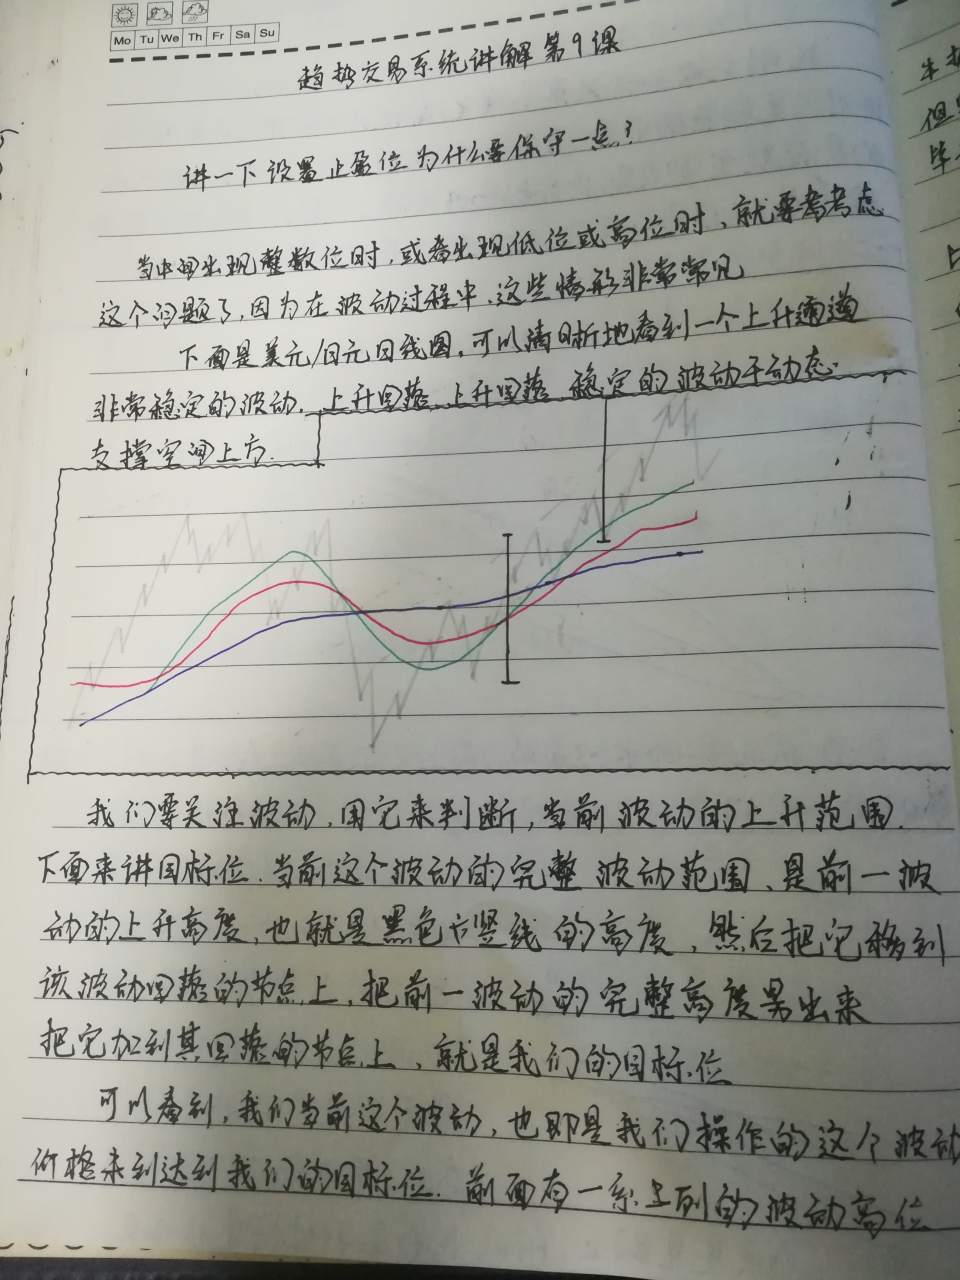 Mo Tu We Th Fr Sa Su
趋势交易系统讲解第9课
讲一下设置止盈位为什么要保守一点？
当中间出现整数位时，或者出现低位或高位时，就要考考虑
这个问题了，因为在波动过程中，这些情形非常常见
下面是美元/日元日线图，可以清晰地看到一个上升通道
非常稳定的波动，上升回落，上升回落，稳定的波动于动态
支撑空间上方.
我们要关注波动，用它来判断，当前波动的上升范围.
下面来讲目标位.当前这个波动的完整波动范围、是前一波
动的上升高度，也就是黑色方竖线的高度，然后把它移到
该波动回落的节点上，把前一波动的完整高度量出来
把它加到其回落的节点上，就是我们的目标位
可以看到，我们当前这个波动，也即是我们操作的这个波动
价格未到达到我们的目标位.前面有一系列的波动高位